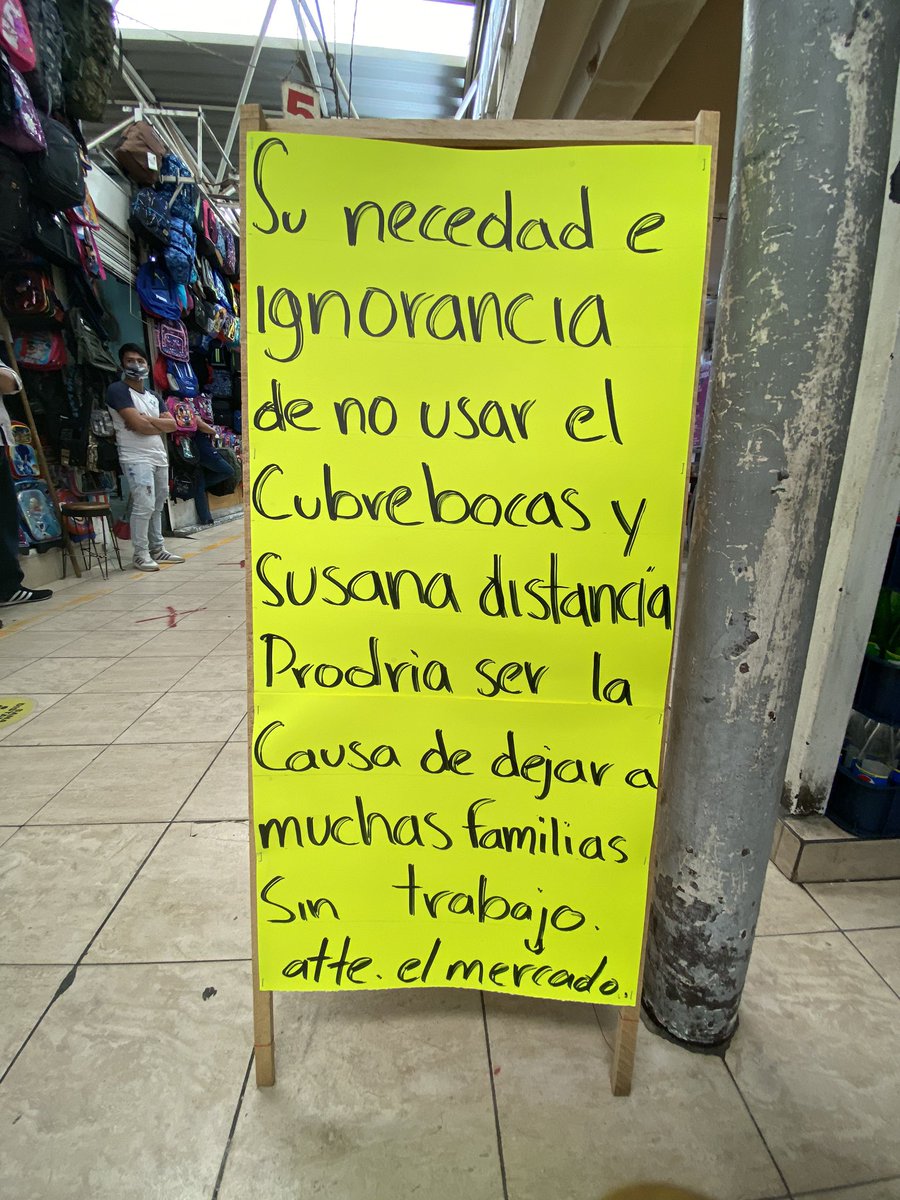 5
Su necedad e
ignorancia
de no usar el
Cubrebocas y
Susana distancia
Prodria ser la
Causa de dejar a
muchas familias
Sin trabajo.
atte. el mercado.